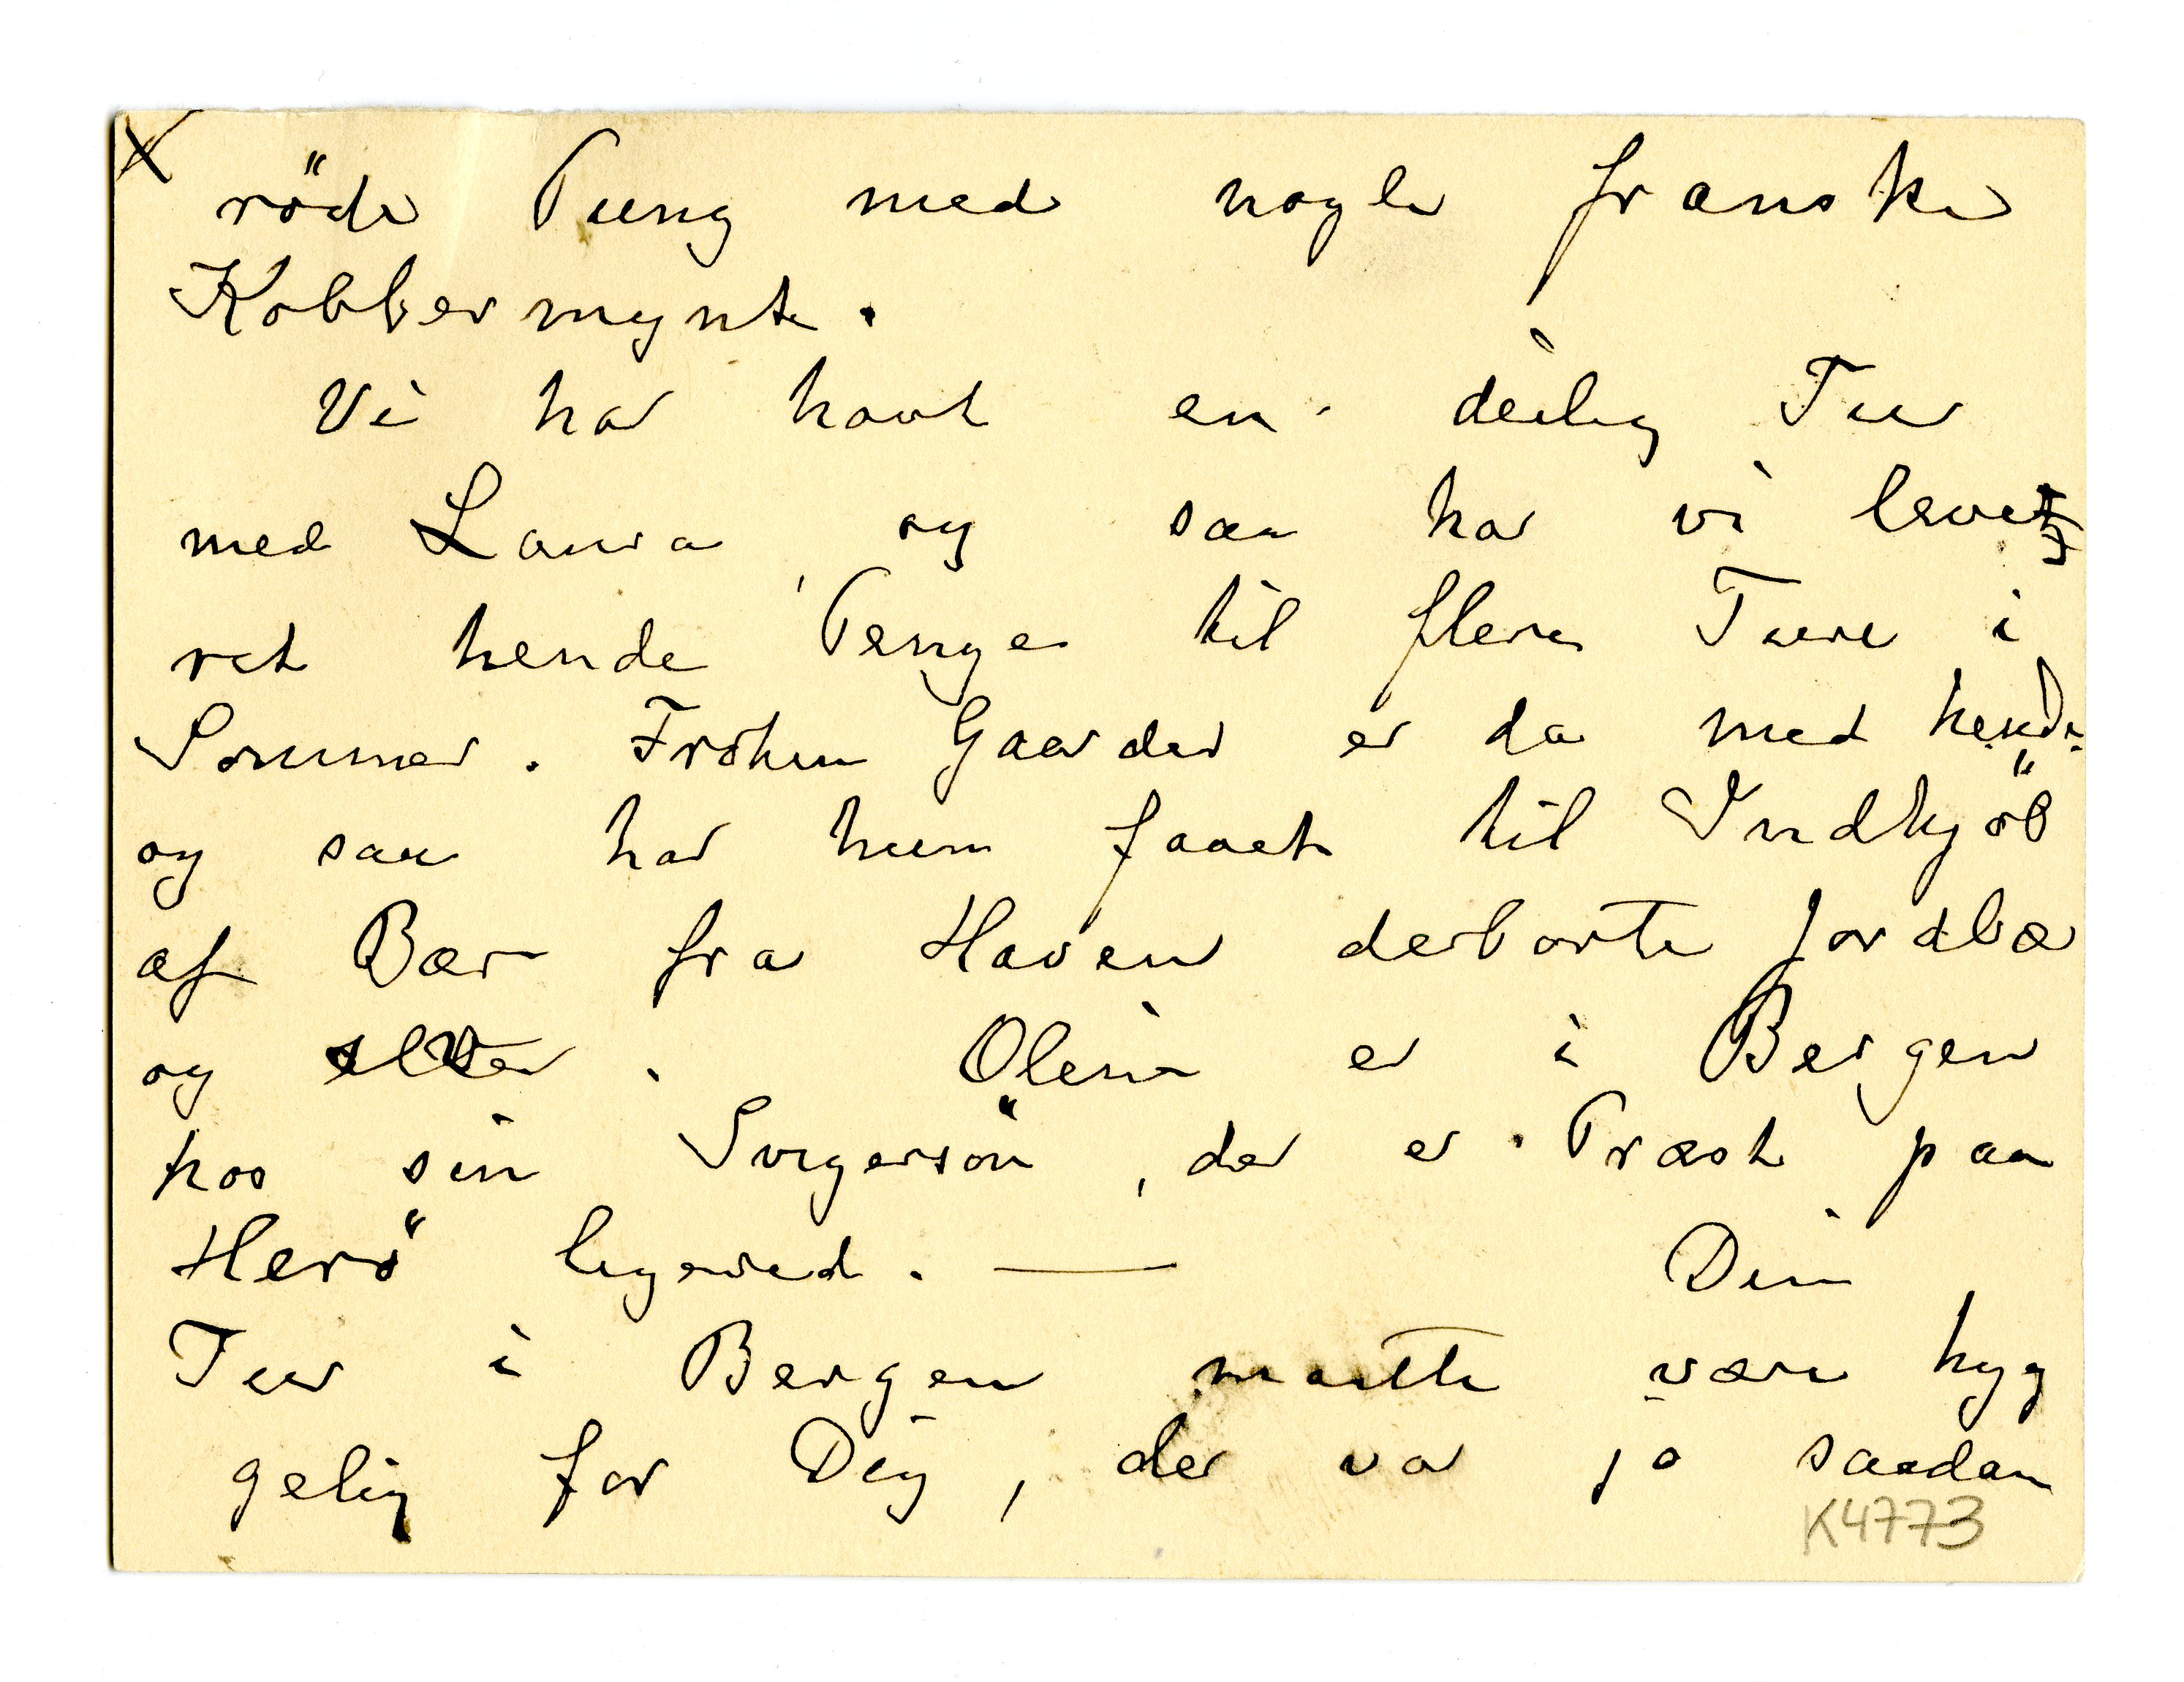 röde Pung med nogle franske
Kobbermynt.
Vi har havt en deilig Tur
med Laura og saa har vi leve
ret hende Penge til flere Ture i
Sommer. Fröken Gaarder er da med hende
og saa har hun faaet til Indkjöb
af Bær fra Haven derborte Jordbær
og
. Olem er i Bergen
hos sin Svigersön, der er Præst paa
Herö ligeved. — Din
Tur i Bergen maatte være hyg
gelig for Dig, der var jo saadan
K4773